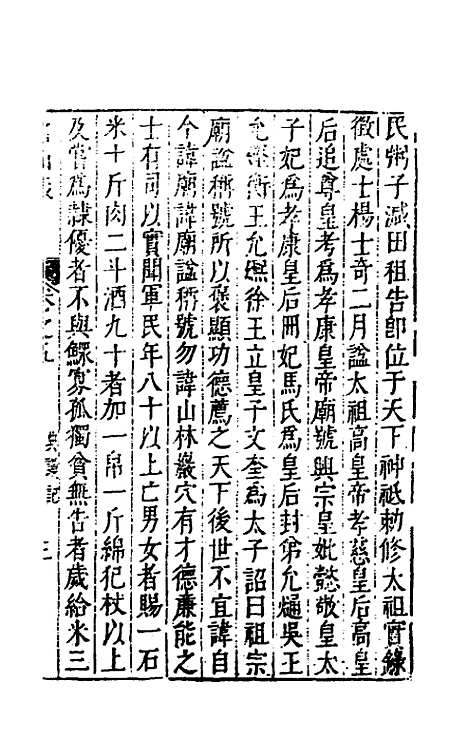 民弟子減田租告卽位于天下神祗勑修太祖實錄
徵處士楊士奇二月諡太祖高皇帝孝慈皇后高皇
后追尊皇考為孝康皇帝廟號興宗皇妣懿敬皇太
子妃為孝康皇后冊妃馬氏為皇后封弟允熥吳王
允熞衡王允㷩徐王立皇子文奎為太子詔曰祖宗
廟諡稱號所以褒顯功德薦之天下後世不宜諱自
今諱廟諱廟諡稱號勿諱山林巖穴有才德廉能之
士有司以實聞軍民年八十以上亡男女者賜一石
米十斤肉二斗酒九十者加一帛一斤綿犯杖以上
及嘗為隷優者不與鰥寡孤獨貧無告者歲給米三
卷之五
典謨記
三